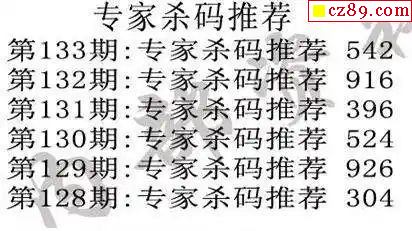 cz89.com
专家杀码推荐
第133期:专家杀码推荐 542
第132期:专家杀码推荐 916
第131期:专家杀码推荐 396
第130期:专家杀码推荐 524
第129期:专家杀码推荐 926
第128期:专家杀码推荐 304